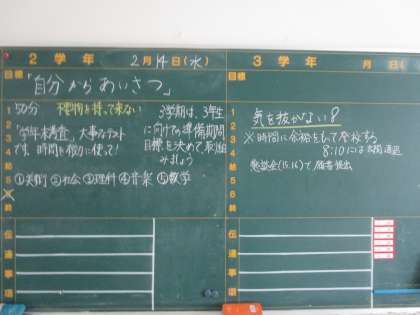 2 学 年 2 月 14 日 (水)
目標 「自分からあいさつ」
50分 不要物を持って来ない
「学年末考査」大事なテスト
です。時間を有効に使って!
3学期は、3年生
に向けての準備期間
目標を決めて取組
みましょう
①美術 ②社会 ③理科 ④音楽 ⑤数学
1
2
3
4
給
5
6
給
伝
達
事
項
3 学 年 月 日 (
目標
気を抜かない!
※ 時間に余裕をもって登校する
8:10には大橋通過
懇談会(15.16)で 願書提出
1
2
3
4
給
5
6
給
伝
達
事
項